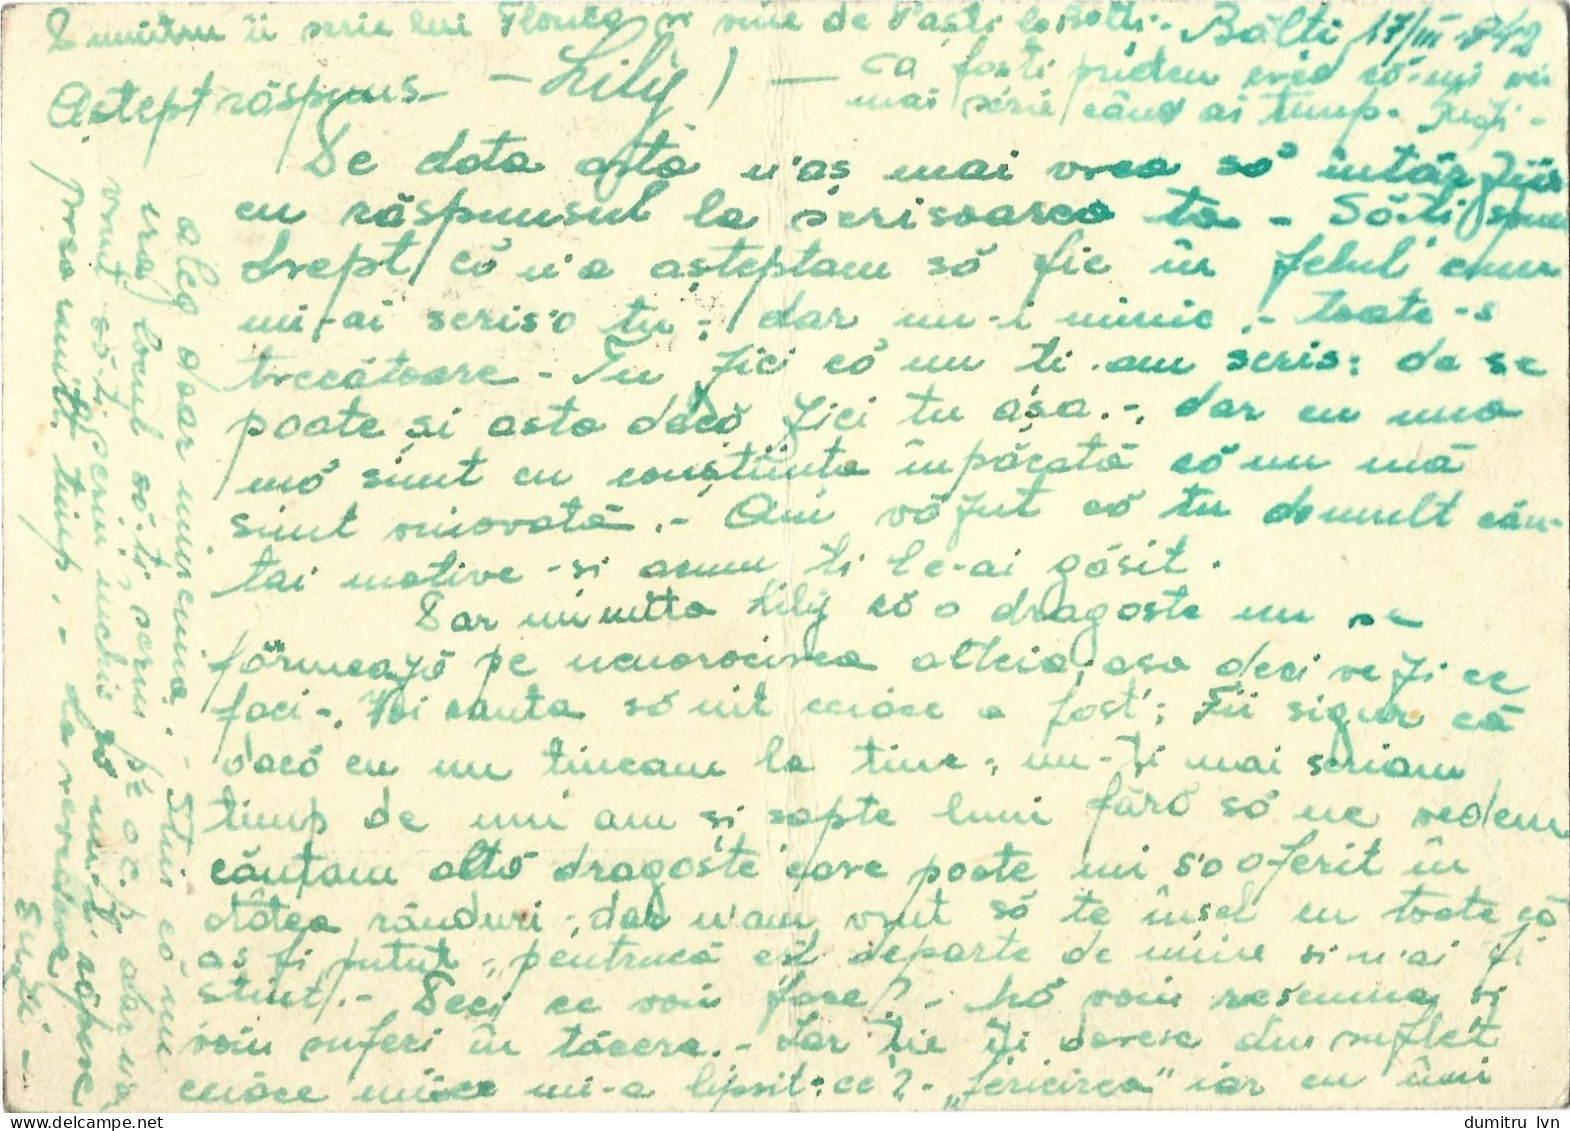 Dumitru îi scrie lui Florica vine de Paști la Bălți.- Bălți 17/III 942
Aștept răspuns - Lily! - Ca fosti
mai scrie când ai timp. Suzi -
De data asta n'aș mai vrea să întârzii
cu răspunsul la scrisoarea ta - Să-ți spun
drept, că n'o așteptam să fie în felul cum
mi-ai scris'o tu; dar nu-i nimic.- toate-s
trecătoare - Tu zici că nu ți-am scris: da se
poate și asta dacă zici tu așa.-, dar eu una
mă simt cu conștiința înpăcată că nu mă
simt vinovată.- Am văzut că tu demult cău-
tai motive -și acum ți le-ai găsit.
Dar nu uita Lily că o dragoste nu se
fărmează pe nenorocirea alteia, așa deci vezi ce
faci-. Voi cauta să uit ceiace a fost; Fii sigur că
dacă eu nu țineam la tine, nu-ți mai scriam
timp de un an și șapte luni fără să ne vedem
căutam altă dragoste care poate mi s'a oferit în
atâtea rânduri; dar n'am vrut să te înșel cu toate că
aș fi putut, pentrucă ești departe de mine și n'ai fi
știut.- Deci ce voiu face? - Mă voiu resemna și
voiu suferi în tăcere.- Iar ție îți doresc din suflet
ceiace mie mi-a lipsit: ce? - "fericirea" iar eu îmi
aleg doar mimi. - Știu că nu
era locul să-ți scriu pe o c.p. dar n'a
vrut să-ți scriu închis să nu-ți răpesc
prea mult timp. - La revedere
Suzi -
dumitru lvn